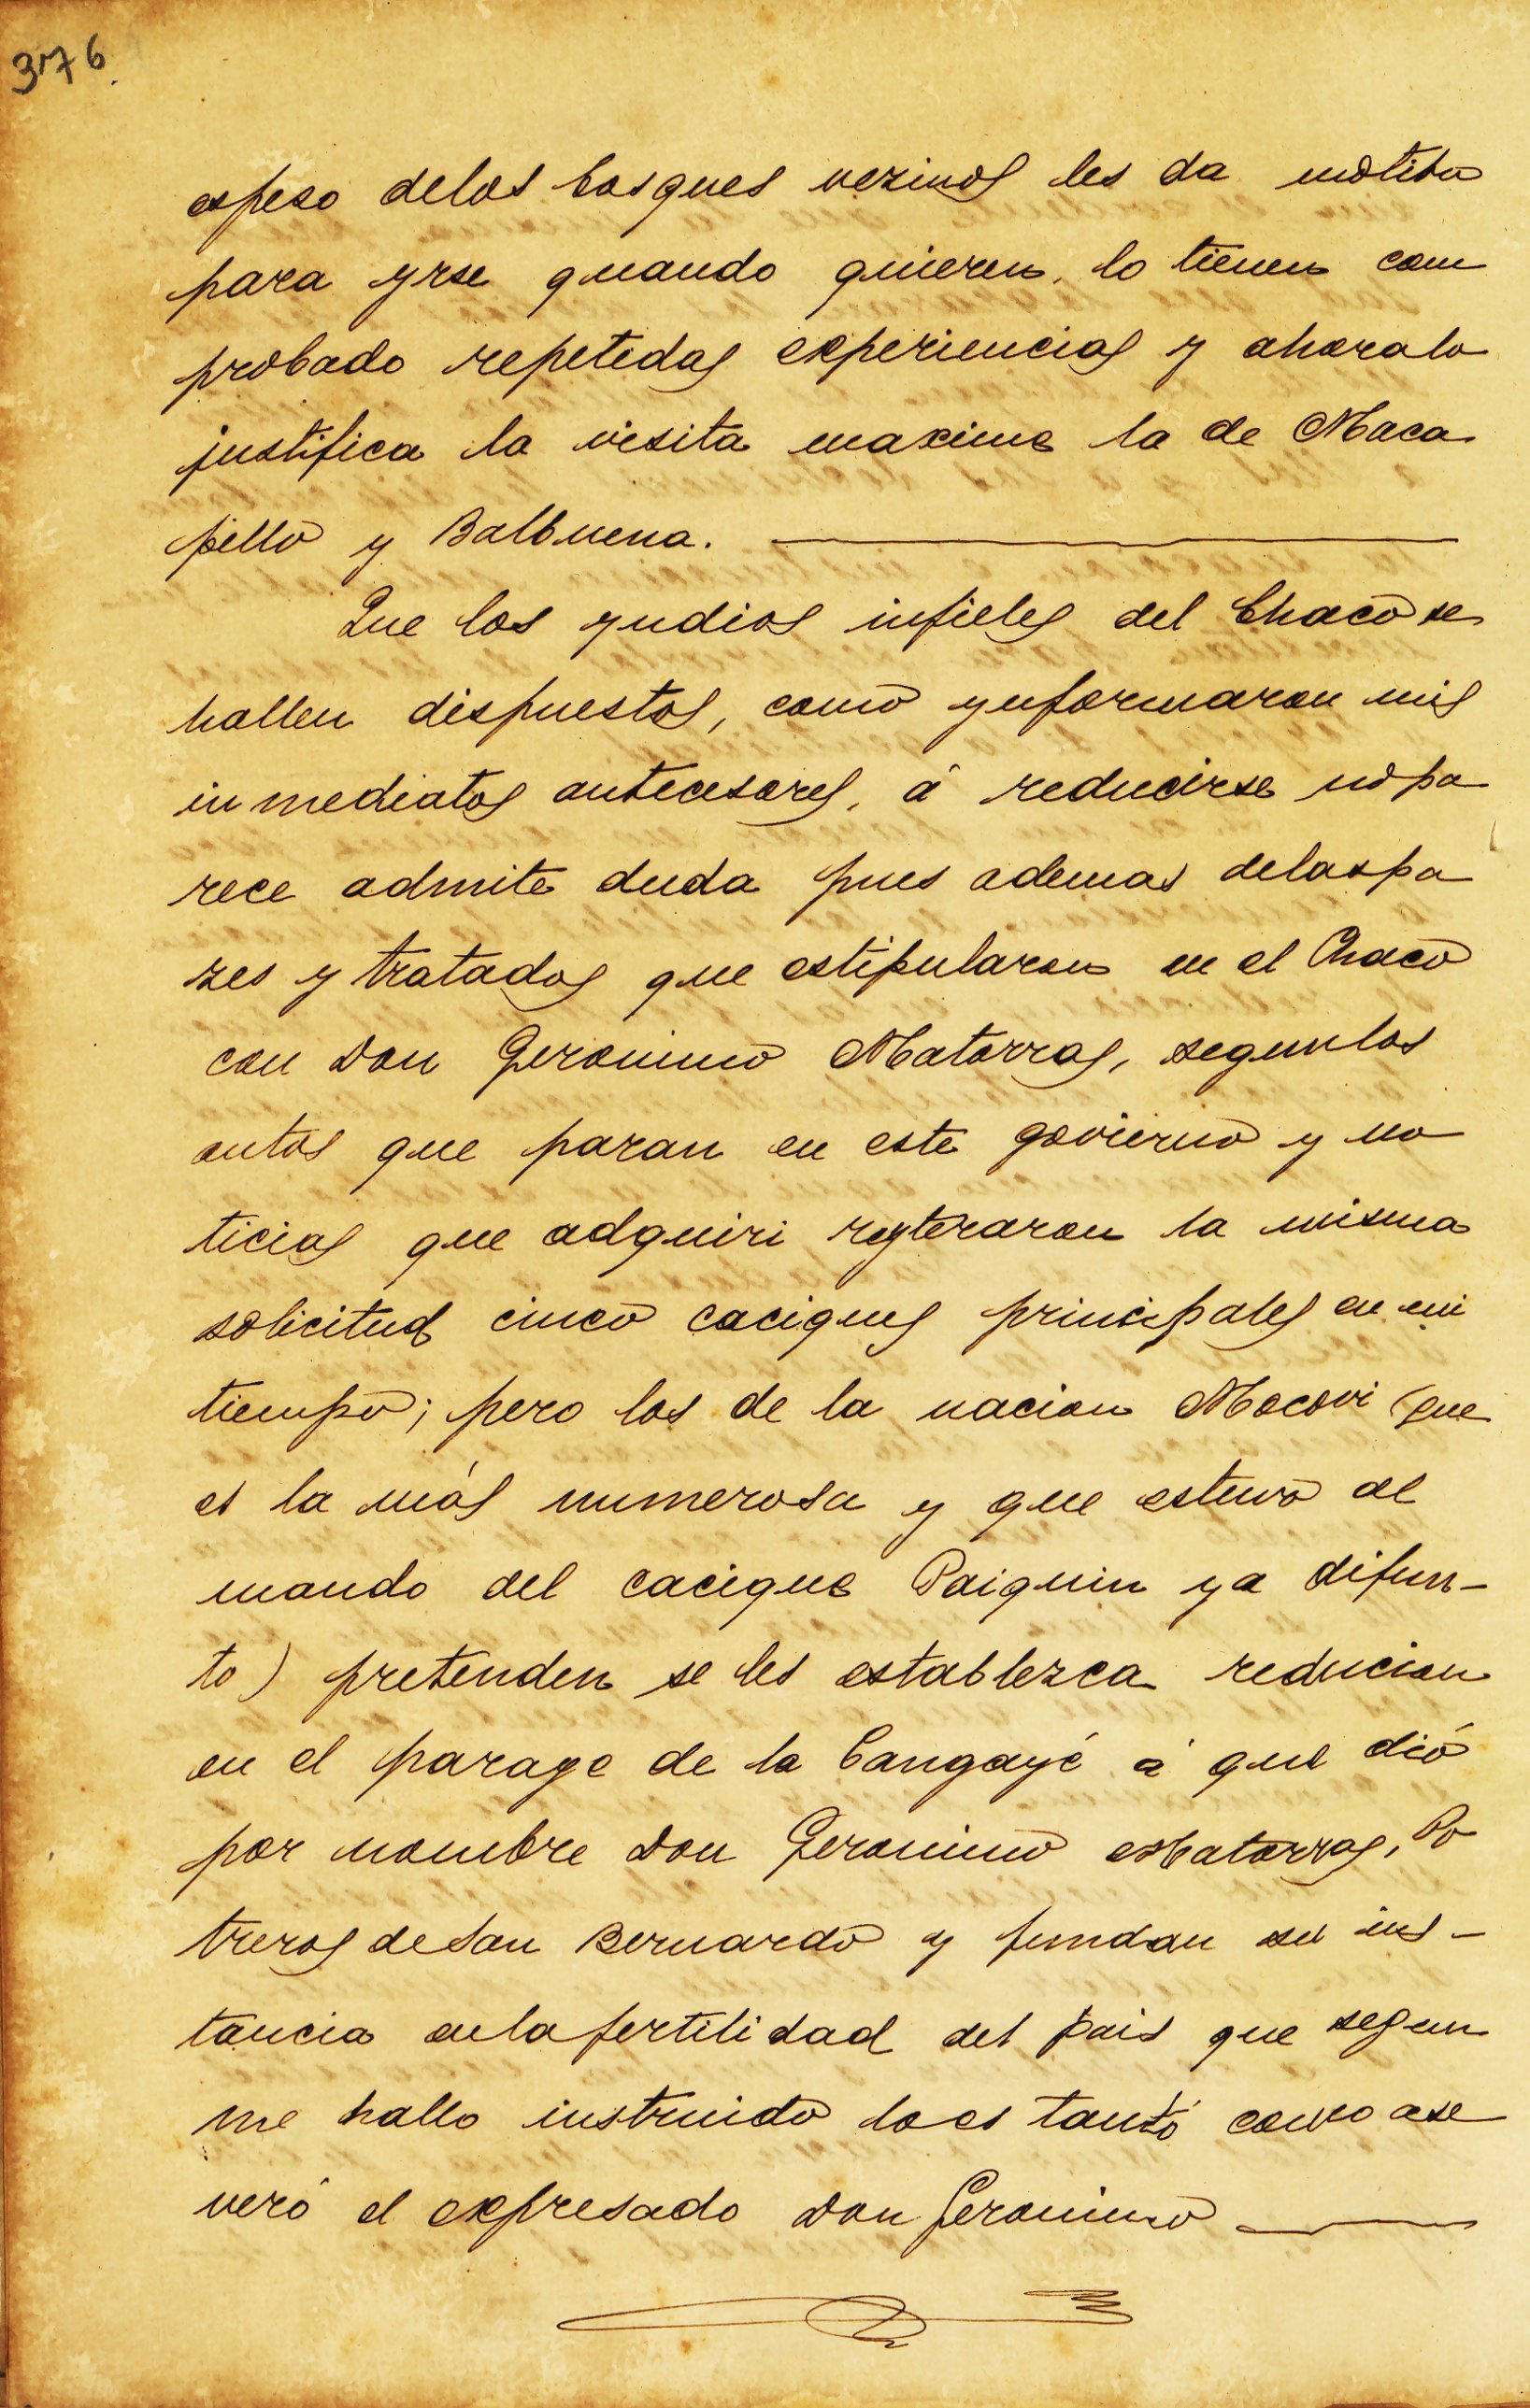 376.
espeso delos bosques vezinos les da motibo
para yrse quando quieren, lo tienen com
probado repetidas experiencias y ahoralo
justifica la visita maxime la de Maca
pillo y Balbuena.
Que los yndios infieles del Chaco se
hallen dispuestos, como ynformaron mis
inmediatos antecesores, á reducirse nopa
rece admite duda pues ademas delaspa
zes y tratados que estipularon en el Chaco
con Don Geronimo Matorras, segunlos
autos que paran en este govierno y no
ticias que adquiri reyteraron la misma
solicitud cinco caciques principales en mi
tiempo; pero los de la nacion Mocovi (que
es la más numerosa y que estuvo al
mando del cacique Paiquin ya difun-
to) pretenden se les establezca reducion
en el parage de la Cangayé á que dió
por nombre Don Geronimo Matorras, Po
treros de San Bernardo y fundan su ins-
tancia enla fertilidad del pais que segun
me hallo instruido lo es tanto como ase
veró el expresado Don Geronimo